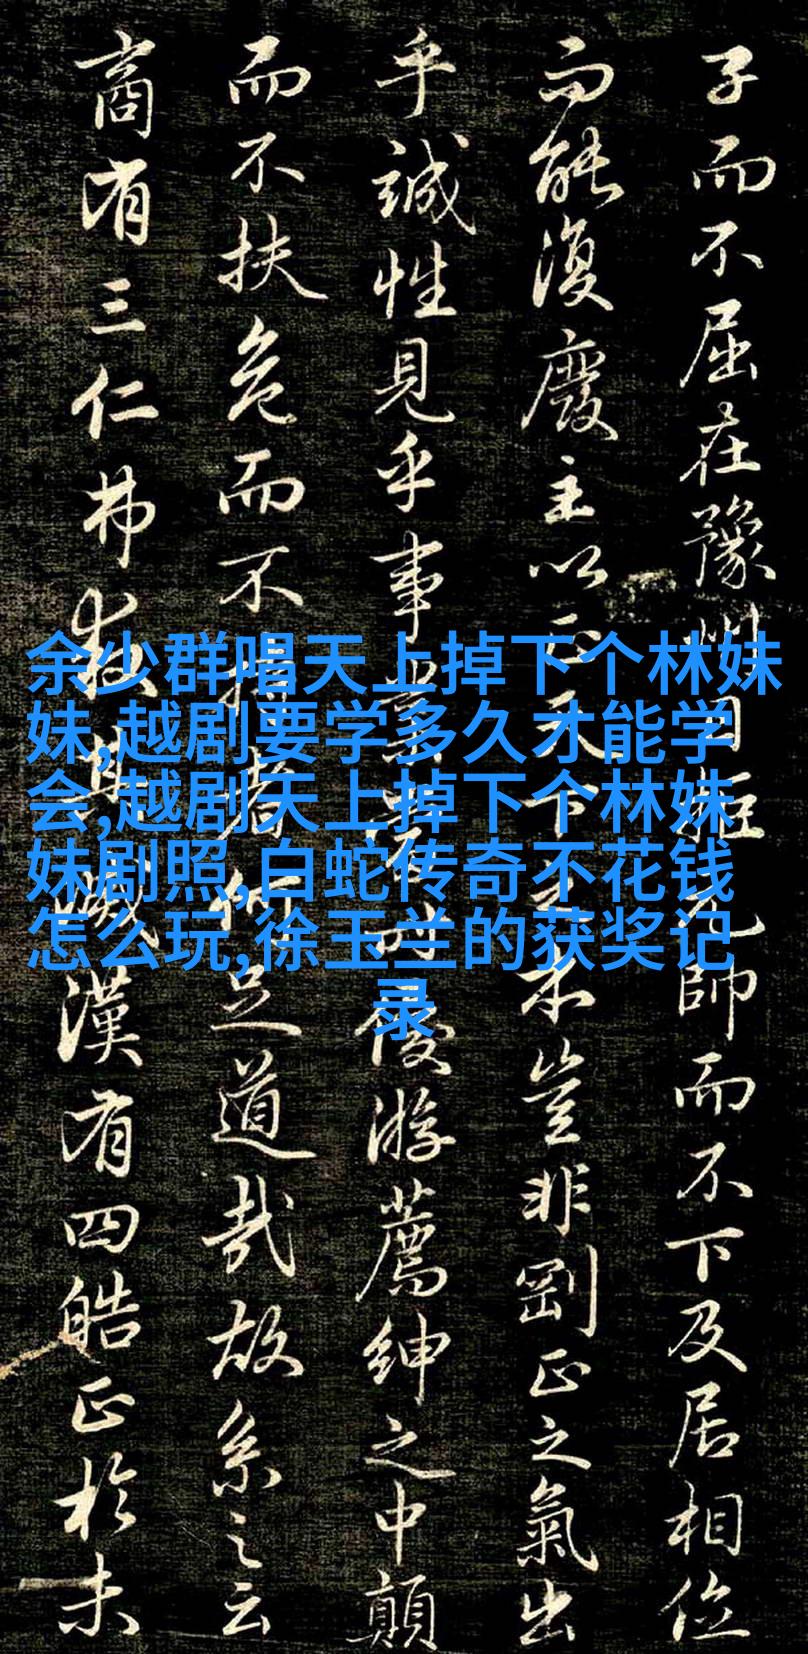 子而不屈在豫州日拒元帥而不下及居相位
而能復廢主以正天下之本豈非剛正之氣出
乎誠性見乎事業當時優游薦紳之中顛
而不扶危而不持者何足道哉故系之云
商有三仁弗救其滅漢有四皓正於未
余少群唱天上掉下个林妹
妹,越剧要学多久才能学
会,越剧天上掉下个林妹
妹剧照,白蛇传奇不花钱
怎么玩,徐玉兰的获奖记
录